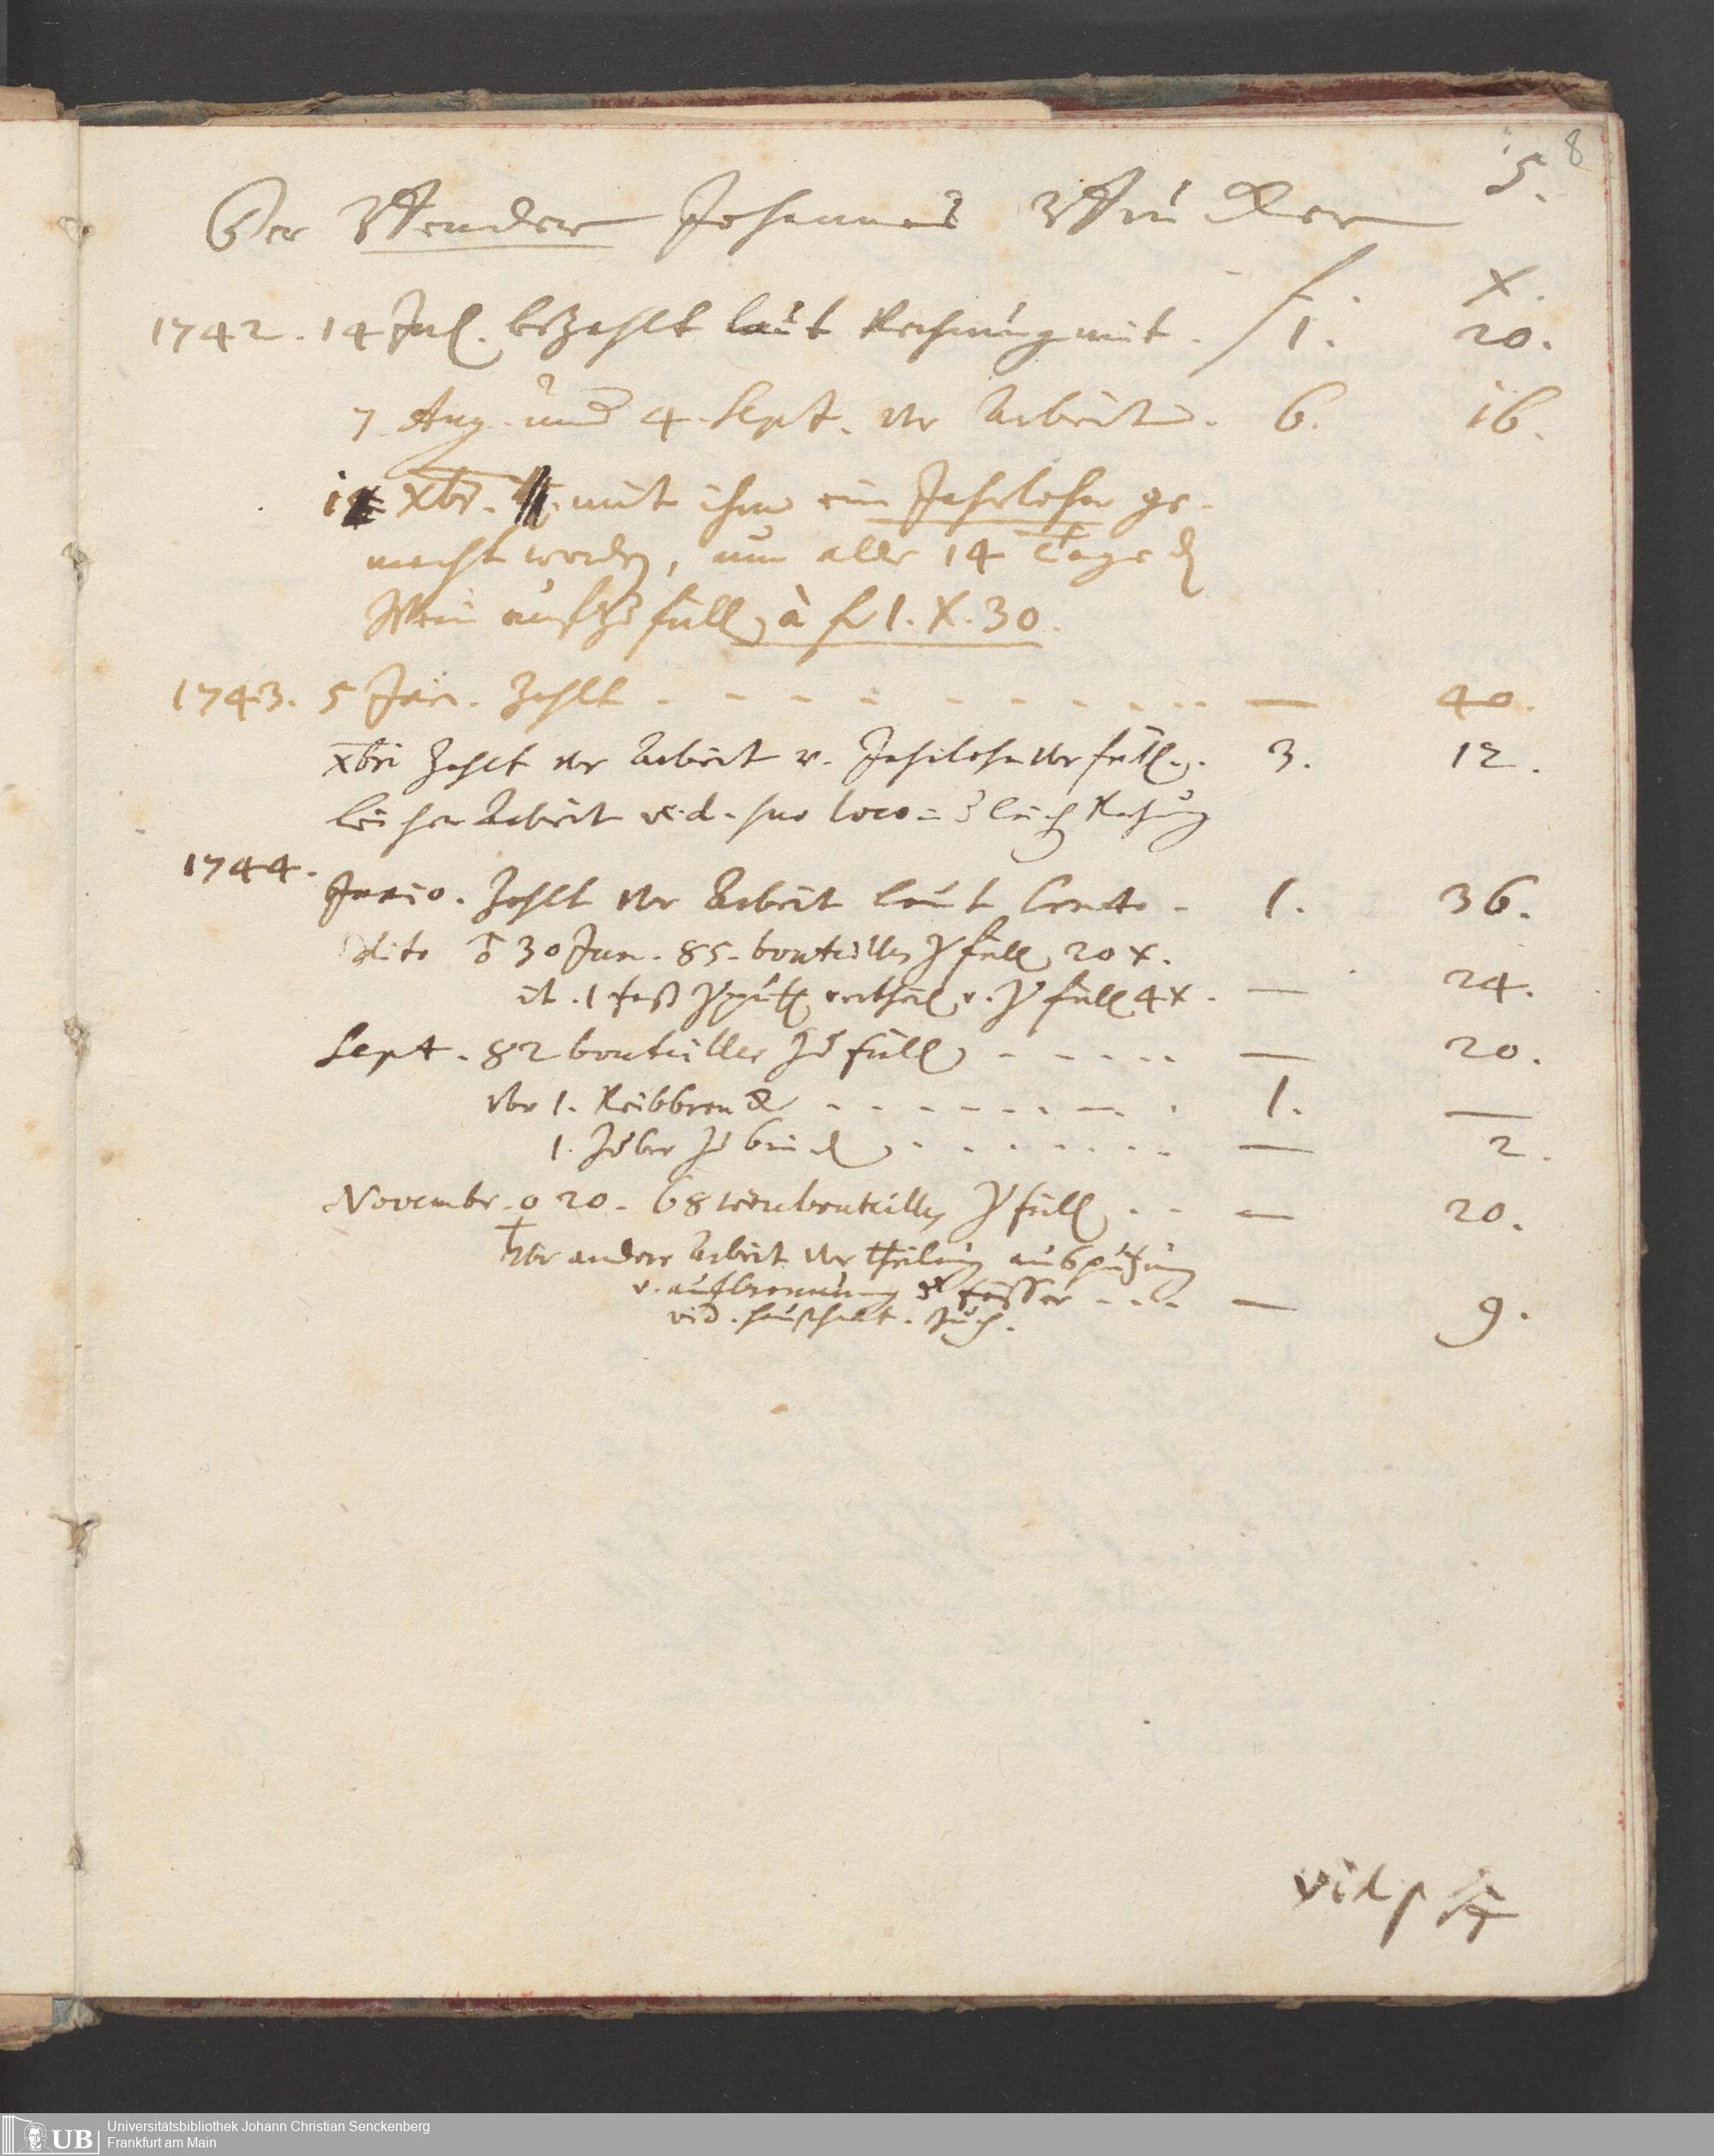 8
5.
Der Bender Johannes
f. x.
1742. 14 Jul. bezahlt laut Rechnung mit. 1. 20.
7 Aug. und 4. Sept. vor Arbeit. 6. 16.
xbr. mit ihm ein Jahrlohn ge-
macht worden, um alle 14 Tage den
Wein aufzufüllen à f 1. X. 30.
1743. 5 Jan. zahlt - - - - - - - - - - — 40.
xbri zahlt vor Arbeit v. Jahrlohn vor füllen. 3. 12.
Arbeit vid. suo loco
1744.
Junio. zahlt vor Arbeit laut Conto - 1. 36.
dito 30 Jun. 85. bouteillen zu füllen 20 x.
it. 1 Faß zu füllen 4 x. — 24.
Sept. 82 bouteilles zu füllen - - - - - — 20.
vor 1. - - - - - - - - 1. —
1. Zuber zu binden - - - - - - - — 2.
Novembr. 20. 68 weinbouteillen zu füllen - - — 20.
vor andere Arbeit vor theilung ausputzung
v. aufbrennung der fässer - - - - — 9.
vid. haushalt. buch.
vid p
Universitätsbibliothek Johann Christian Senckenberg
UB Frankfurt am Main